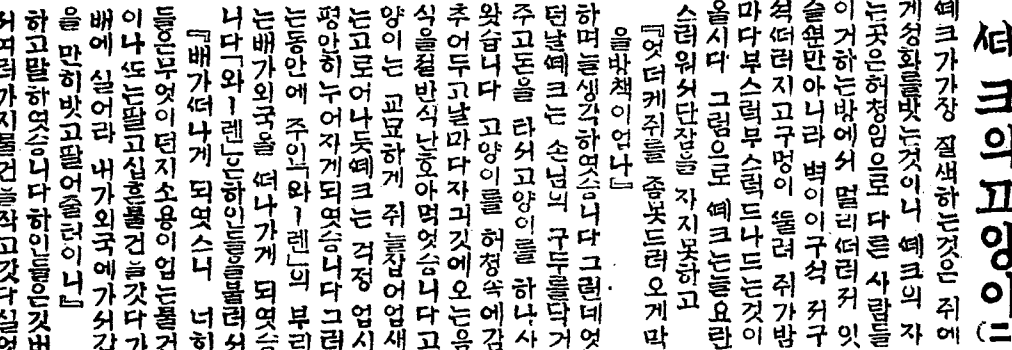 ᄯᅦ크의고양이(二
ᄯᅦ크가가장 질색하는것은 쥐에
게성화를밧는것이니 ᄯᅦ크의 자
는곳은허청임으로 다른 사람들
이거하는방에서 멀리ᄯᅥ러저 잇
슬ᄲᅮᆫ만아니라 벽이이구석 저구
석ᄯᅥ러지고구멍이 ᄯᅮᆯ려 쥐가밤
마다부스럭부스럭드나드는것이
올시다 그럼으로 ᄯᅦ크는늘요란
스러워서단잠을 자지못하고
『엇더케쥐를 좀못드러오게막
을방책이업나』
하며늘생각하엿습니다 그런데엇
던날ᄯᅦ크는 손님의 구두를닥거
주고돈을 타서고양이를 하나사
왓습니다 고양이를 허청속에감
추어두고날마다자긔깃에오는음
식을절반식난호아먹엇습니다고
양이는 교묘하게 쥐늘잡어업새
는고로어나듯ᄯᅦ크는 걱정 업시
평안히누어자게되엿습니다 그러
는동안에 주인『와ー렌』의 부리
는배가외국을 ᄯᅥ나가게 되엿습
니다『와ー렌』은하인들을불러서
『배가ᄯᅥ나게 되엿스니 너희
들은무엇이던지소용이업는물건
이나ᄯᅩ는팔고십흔물건을갓다가
배에 실어라 내가외국에가서갑
을 만히밧고팔어줄터이니』
하고말하엿습니다하인들은깃버
서여러가지물건을작고갓다실엇